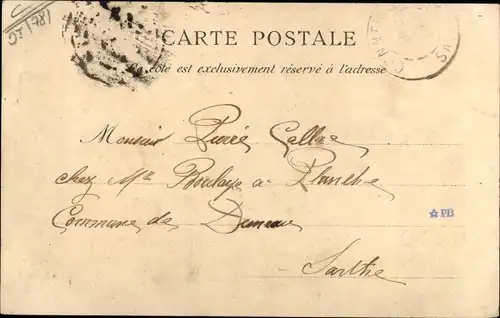 CARTE POSTALE
côté est exclusivement réservé à l'adresse
Monsieur Pierre
chez Mr Boulaye a Planche
Commune de
Sarthe
PB